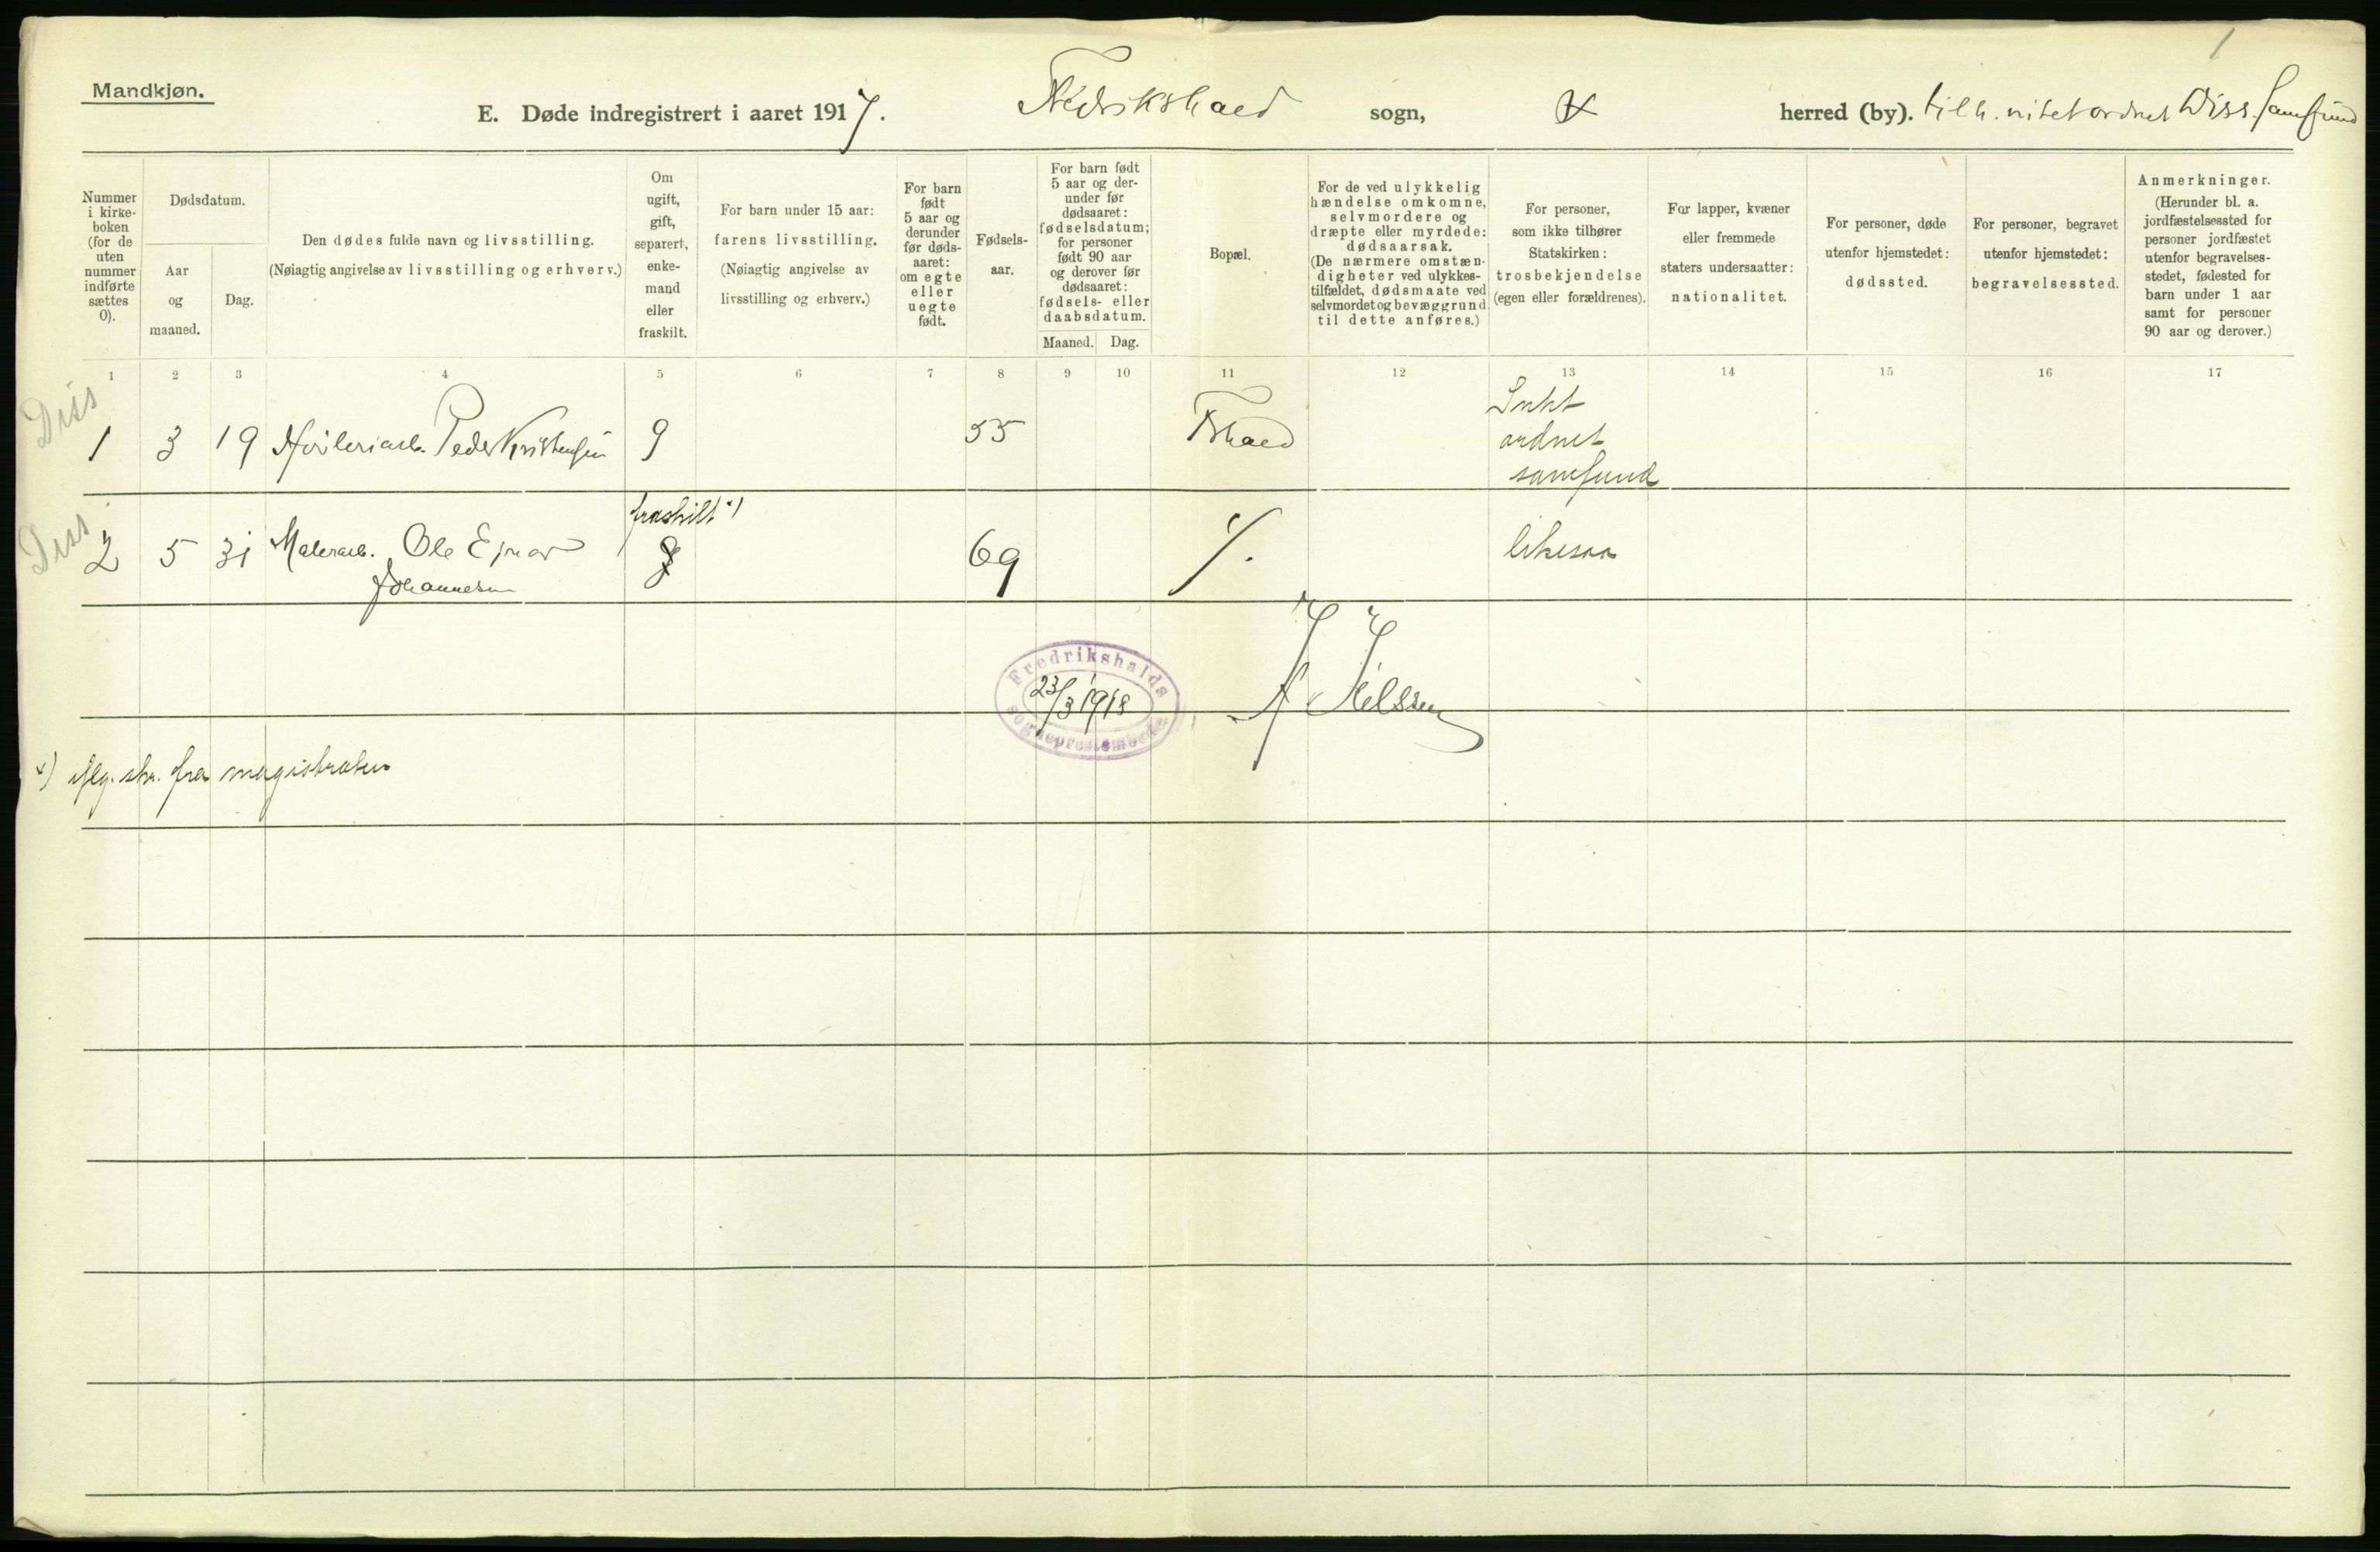 1
Mandkjøn.
E. Døde indregistrert i aaret 1917. Fredrikshald sogn, herred (by). tilh. Diss. samfund
Nummer i kirkeboken (for de uten nummer indførte sættes 0).
Dødsdatum.
Aar og maaned.
Dag.
Den dødes fulde navn og livsstilling.
(Nøiagtig angivelse av livsstilling og erhverv.)
Om ugift, gift, separert, enkemand eller fraskilt.
For barn under 15 aar:
farens livsstilling.
(Nøiagtig angivelse av livsstilling og erhverv.)
For barn født 5 aar og derunder før dødsaaret: om egte eller uegte født.
Fødselsaar.
For barn født 5 aar og derunder før dødsaaret: fødselsdatum; for personer født 90 aar og derover før dødsaaret: fødsels- eller daabsdatum.
Maaned.
Dag.
Bopæl.
For de ved ulykkelig hændelse omkomne, selvmordere og dræpte eller myrdede: dødsaarsak.
(De nærmere omstændigheter ved ulykkestilfældet, dødsmaate ved selvmordet og bevæggrund til dette anføres.)
For personer, som ikke tilhører Statskirken: trosbekjendelse (egen eller forældrenes).
For lapper, kvæner eller fremmede staters undersaatter: nationalitet.
For personer, døde utenfor hjemstedet: dødssted.
For personer, begravet utenfor hjemstedet: begravelsessted.
Anmerkninger.
(Herunder bl. a. jordfæstelsessted for personer jordfæstet utenfor begravelsesstedet, fødested for barn under 1 aar samt for personer 90 aar og derover.)
1 2 3 4 5 6 7 8 9 10 11 12 13 14 15 16 17
Diss
1 3 19 Peder Kristensen g 55 Fshald ordnet samfund
Diss
2 5 31 Malerarb. Ole Ejnar Johannesen fraskilt x) g 69 likesaa
Fredrikshalds
23/3 1918
sogneprestembede
Nilssen
x) iflg. skr. fra magistraten